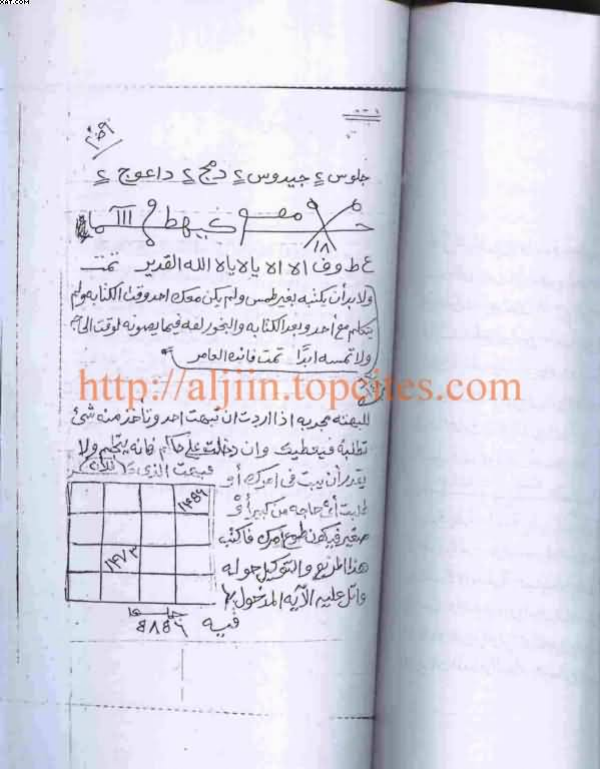 XAT.COM
٢٥٩
جلوس ٤ جيدوس ٤ دمج ٤ داعوج ٤
كيهطم ااا
١٨
ع ط و ف الا الا يالا يالا الله القدير تمت
ولا بد أن يكتبه بغير طمس ولم يكن معك احد وقت الكتابه ولم
يتكلم مع احد وبعد الكتابه والبخور لفه فيما يصونه لوقت
ولا تمسه ابدًا تمت فائدة العامر
http://aljiin.topcites.com
للبهته مجربه اذا اردت ان تبهت احد وتأخذ منه شئ
تطلبه فيعطيك وان دخلت على حاكم فانه يتكلم ولا
يقدر أن يبت في امرك أو فبهت الذى
طلبت أى حاجه من كبير أو
صغير فيكون طوع امرك فاكتب
هذا المربع والتوكيل حوله
واتل عليه الآيه المدخول بها
فيه
١٤٥٦
١٤٧٣
جملها
٥٨٥٦